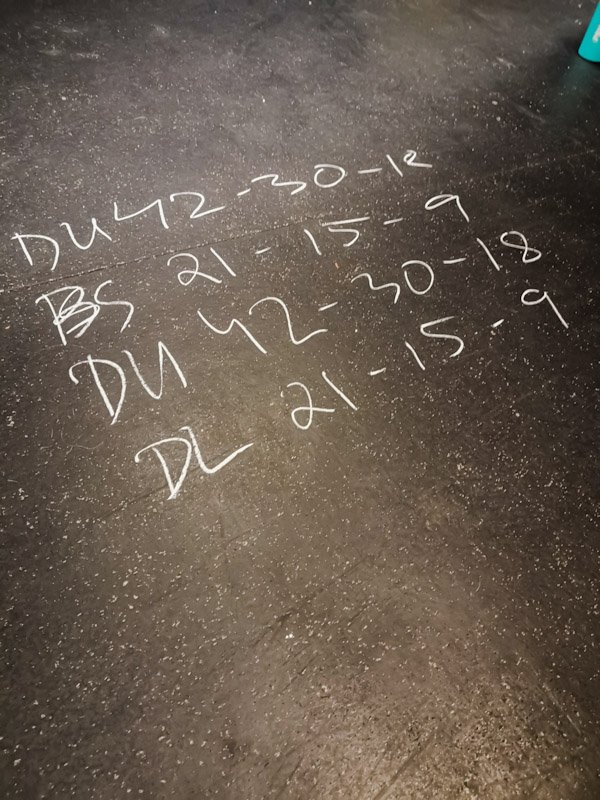 DU 42-30-18
BS 21-15-9
DU 42-30-18
DL 21-15-9